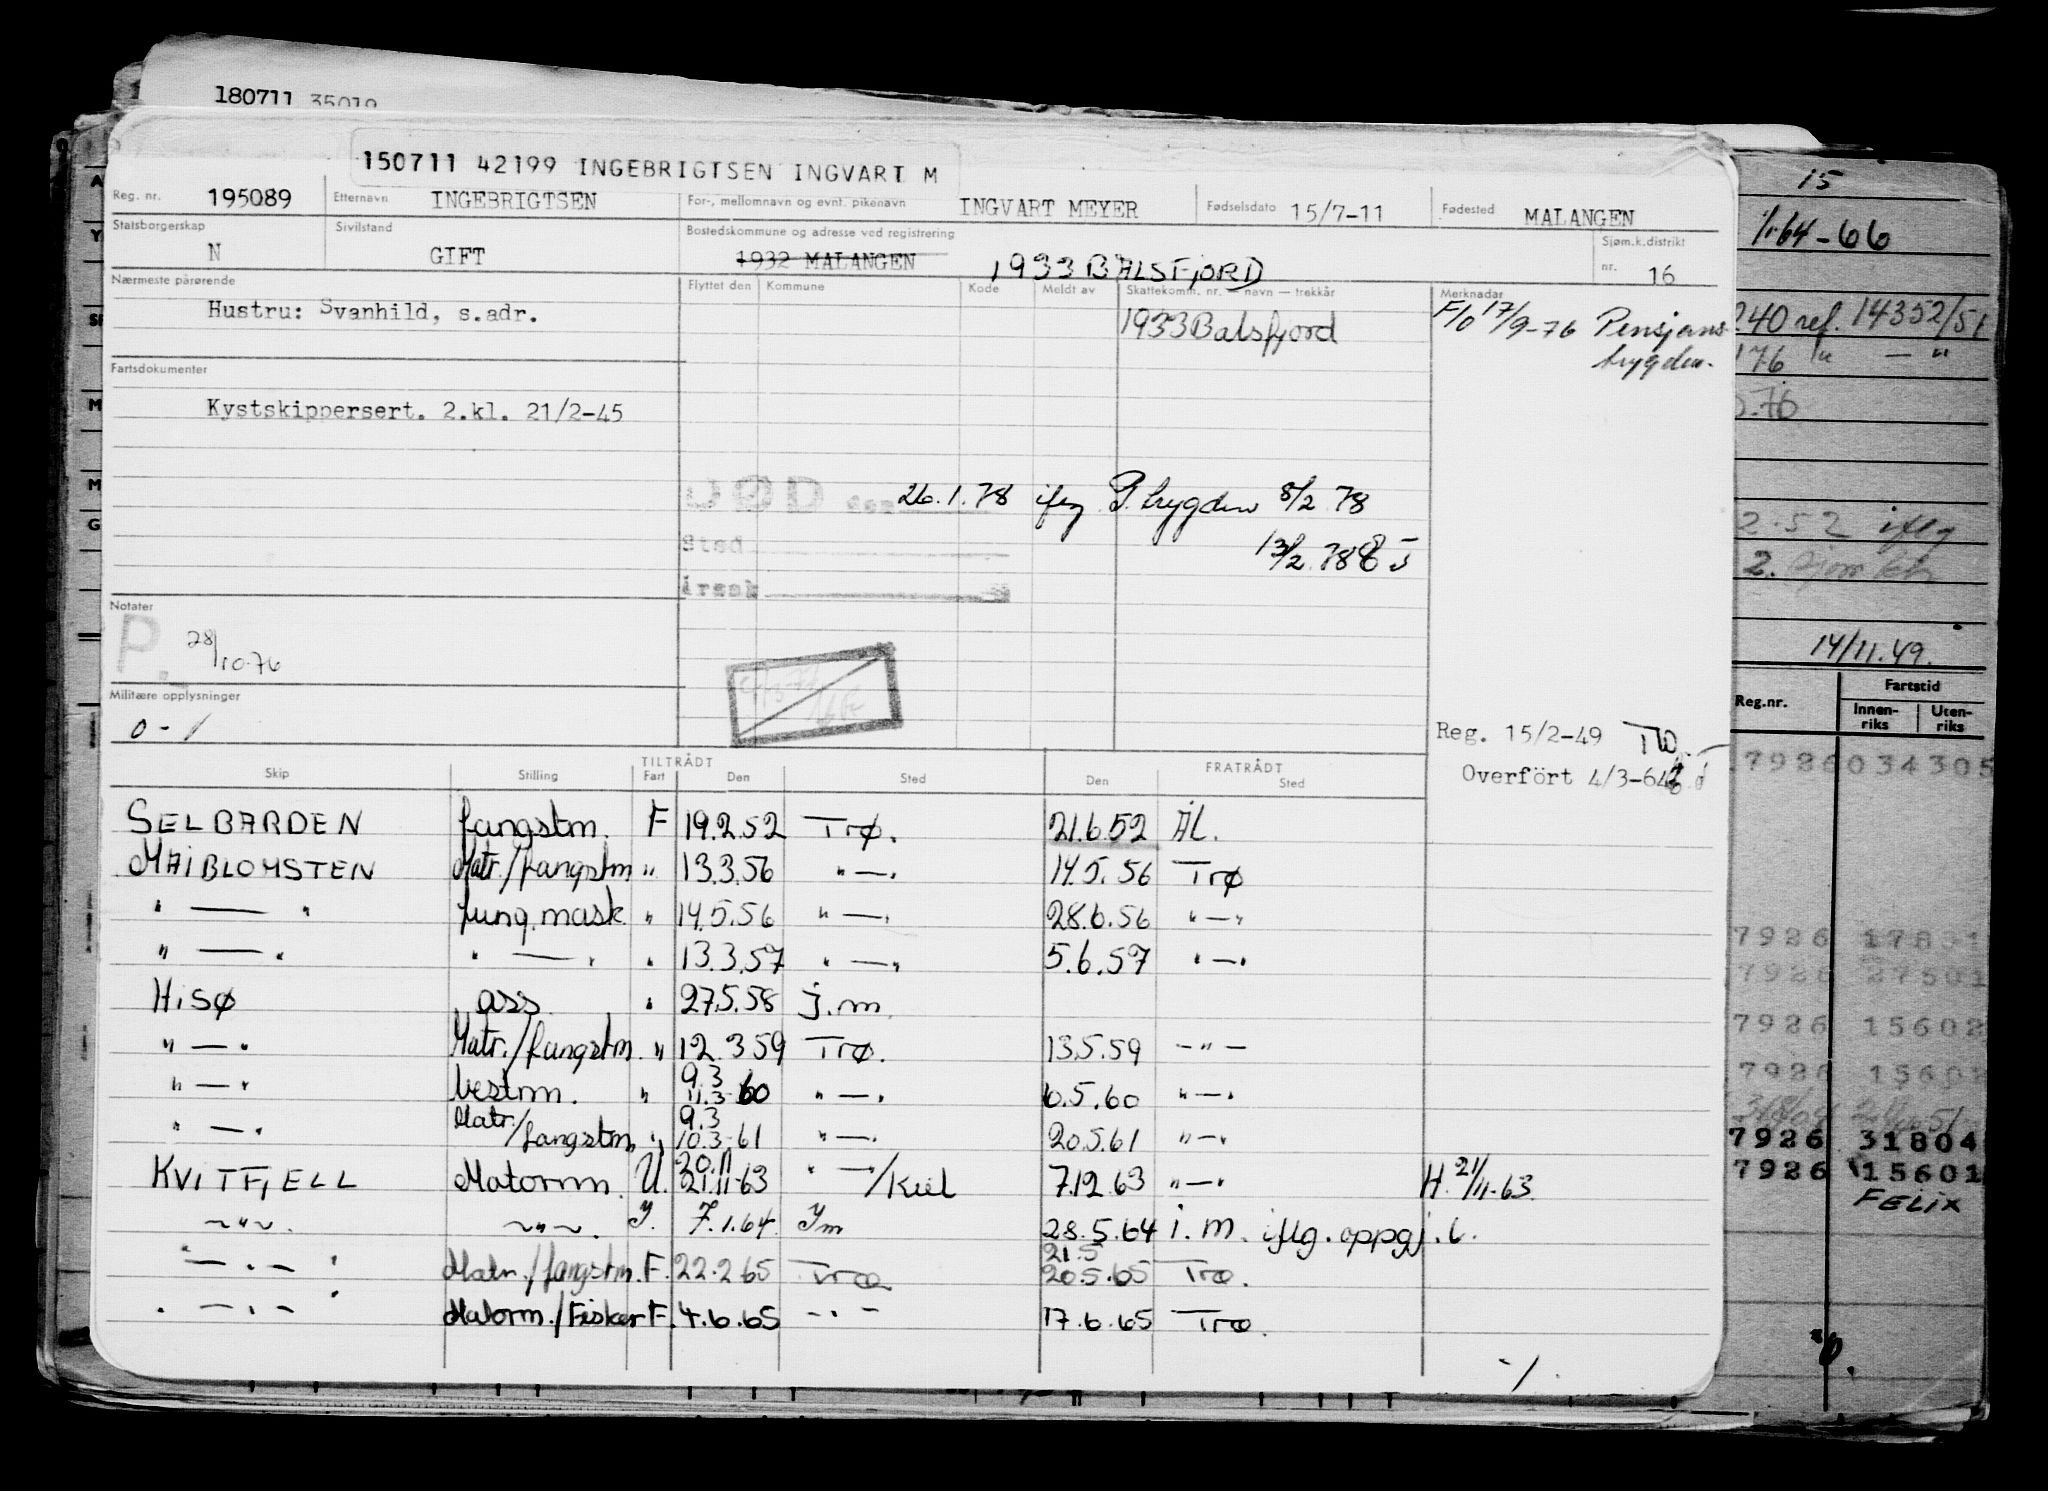 180711 35019
150711 42199 INGEBRIGTSEN INGVART M
Reg. nr. 195089 Etternavn INGEBRIGTSEN For-, mellomnavn og evnt. pikenavn INGVART MEYER Fødselsdato 15/7-11 Fødested MALANGEN
Statsborgerskap N Sivilstand GIFT Bostedskommune og adresse ved registrering 1932 MALANGEN 1933 BALSFJORD Sjøm.k.distrikt nr. 16
Nærmeste pårørende Flyttet den Kommune Kode Meldt av Skattekomm. nr. — navn — trekkår Merknader
Hustru: Svanhild, s.adr. 1933 Balsfjord F/o 17/9-76 Pensjons
trygden.
Fartsdokumenter
Kystskippersert. 2.kl. 21/2-45
DØD den 26.1.78 iflg P. trygden 8/2 78
Sted 13/2 78
Årsak
Notater
P. 28/10.76
Militære opplysninger
0 - 1
Reg. 15/2-49
Overfört 4/3-64
TILTRÅDT FRATRÅDT
Skip Stilling Fart Den Sted Den Sted
SELBARDEN fangstm. F 19.2.52 Trø. 21.6.52 Ål.
MAIBLOMSTEN Matr./fangstm " 13.3.56 " — " 14.5.56 Trø
" — " fung. mask " 14.5.56 " — " 28.6.56 " — "
" — " " — " " 13.3.57 " — " 5.6.57 " — "
HISØ ass " 27.5.58 j.m.
" — " Matr./fangstm. " 12.3.59 Trø. 13.5.59 - " -
" — " bestm. " 9.3 11.3-60 " — " 6.5.60 " — "
" — " Matr./fangstm " 9.3 10.3-61 " — " 20.5.61 " — "
KVITFJELL Matorm. U. 20.11 21.11-63 " — "/Kiel 7.12.63 " — " H. 21/11-63
~"~. ~"~. I. 7.1.64 Im 28.5.64 i.m. iflg. oppgj.l.
" — " Matr./fangstm. F. 22.2.65 Trø 21.5 20.5.65 Trø.
" — " Matorm./Fisker F. 4.6.65 - " - 17.6.65 Trø.
-/.
15
1/1.64-66
240 ref. 14352/51
176 " — "
2.52 iflg
14/11.49.
Reg.nr. Fartstid
Innen-riks Uten-riks
7926 034305
7926 17831
7926 27501
7926 15602
7926 15602
7926 31804
7926 15601
FELIX